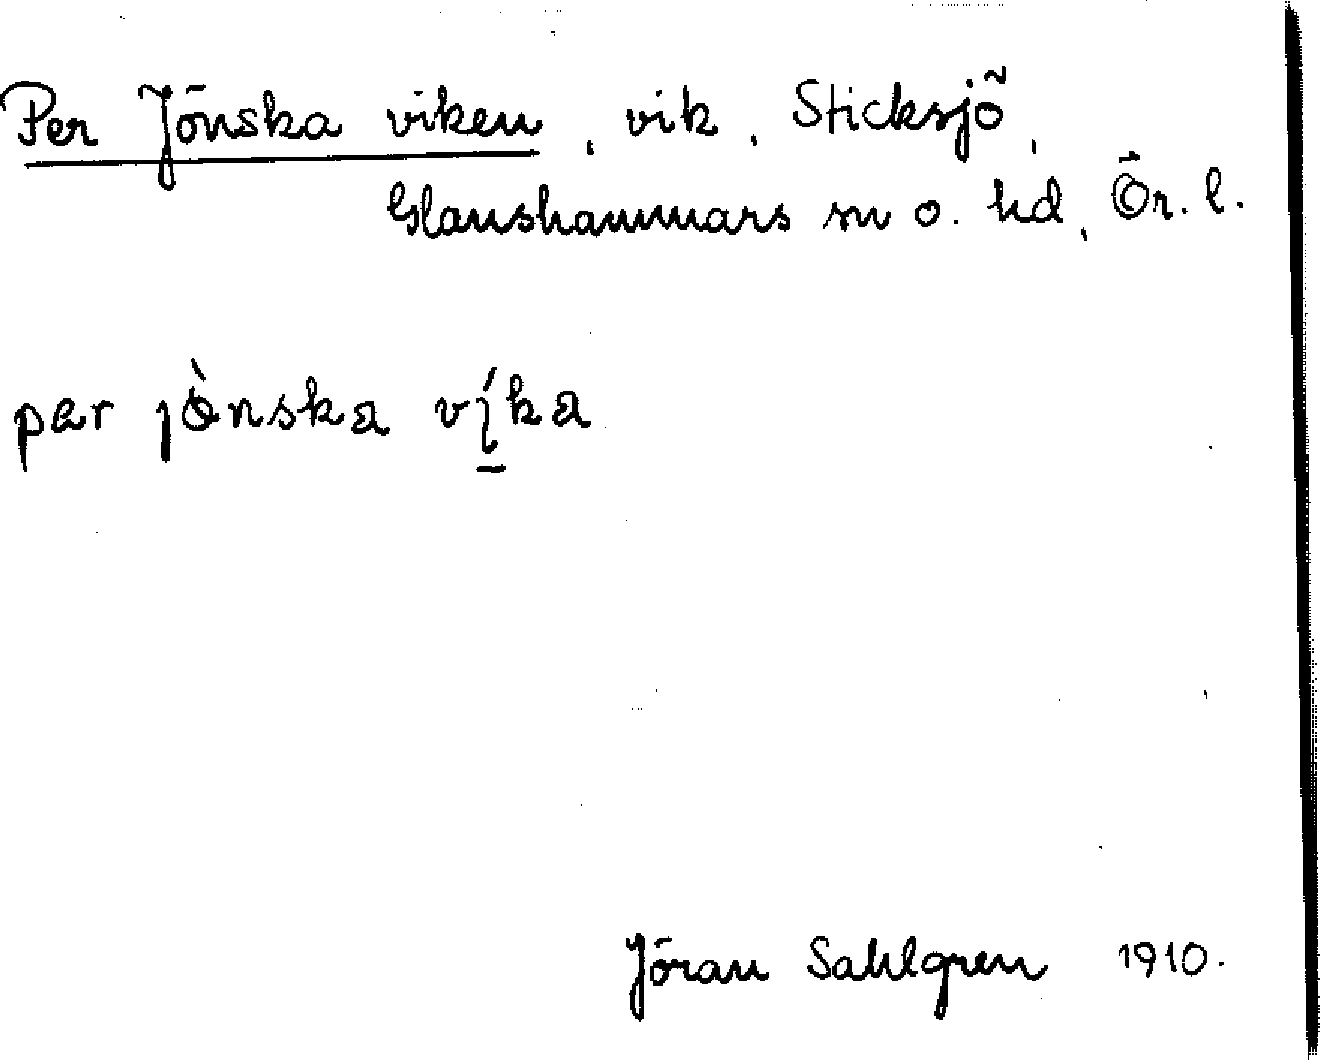 Per Jönska viken, vik, Sticksjö,
Glanshammars sn o. hd, Ör. l.
per jònska víka
Jöran Sahlgren 1910.